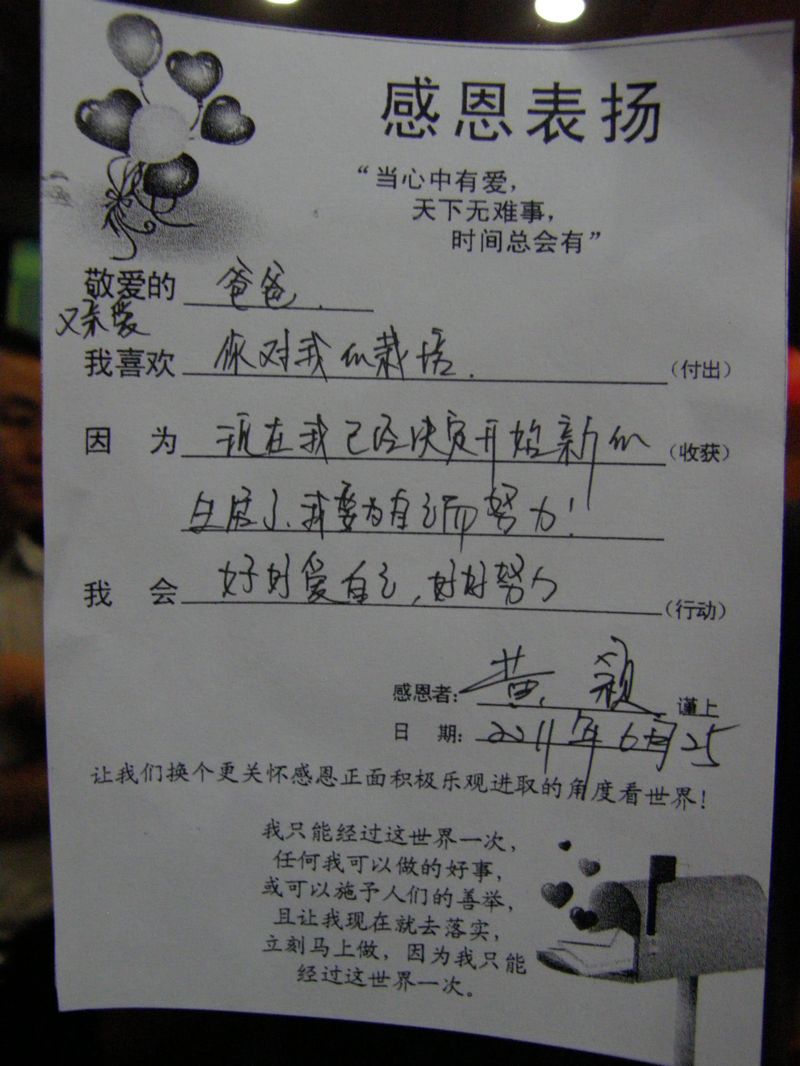 感恩表扬
“当心中有爱，
天下无难事，
时间总会有”
敬爱的 爸爸.
又亲爱
我喜欢 你对我的栽培. (付出)
因 为 现在我已经决定开始新的 (收获)
生活了、我要为自己而努力！
我 会 好好爱自己，好好努力 (行动)
感恩者: 黄颖 谨上
日 期: 2011年6月25
让我们换个更关怀感恩正面积极乐观进取的角度看世界！
我只能经过这世界一次，
任何我可以做的好事，
或可以施予人们的善举，
且让我现在就去落实，
立刻马上做，因为我只能
经过这世界一次。